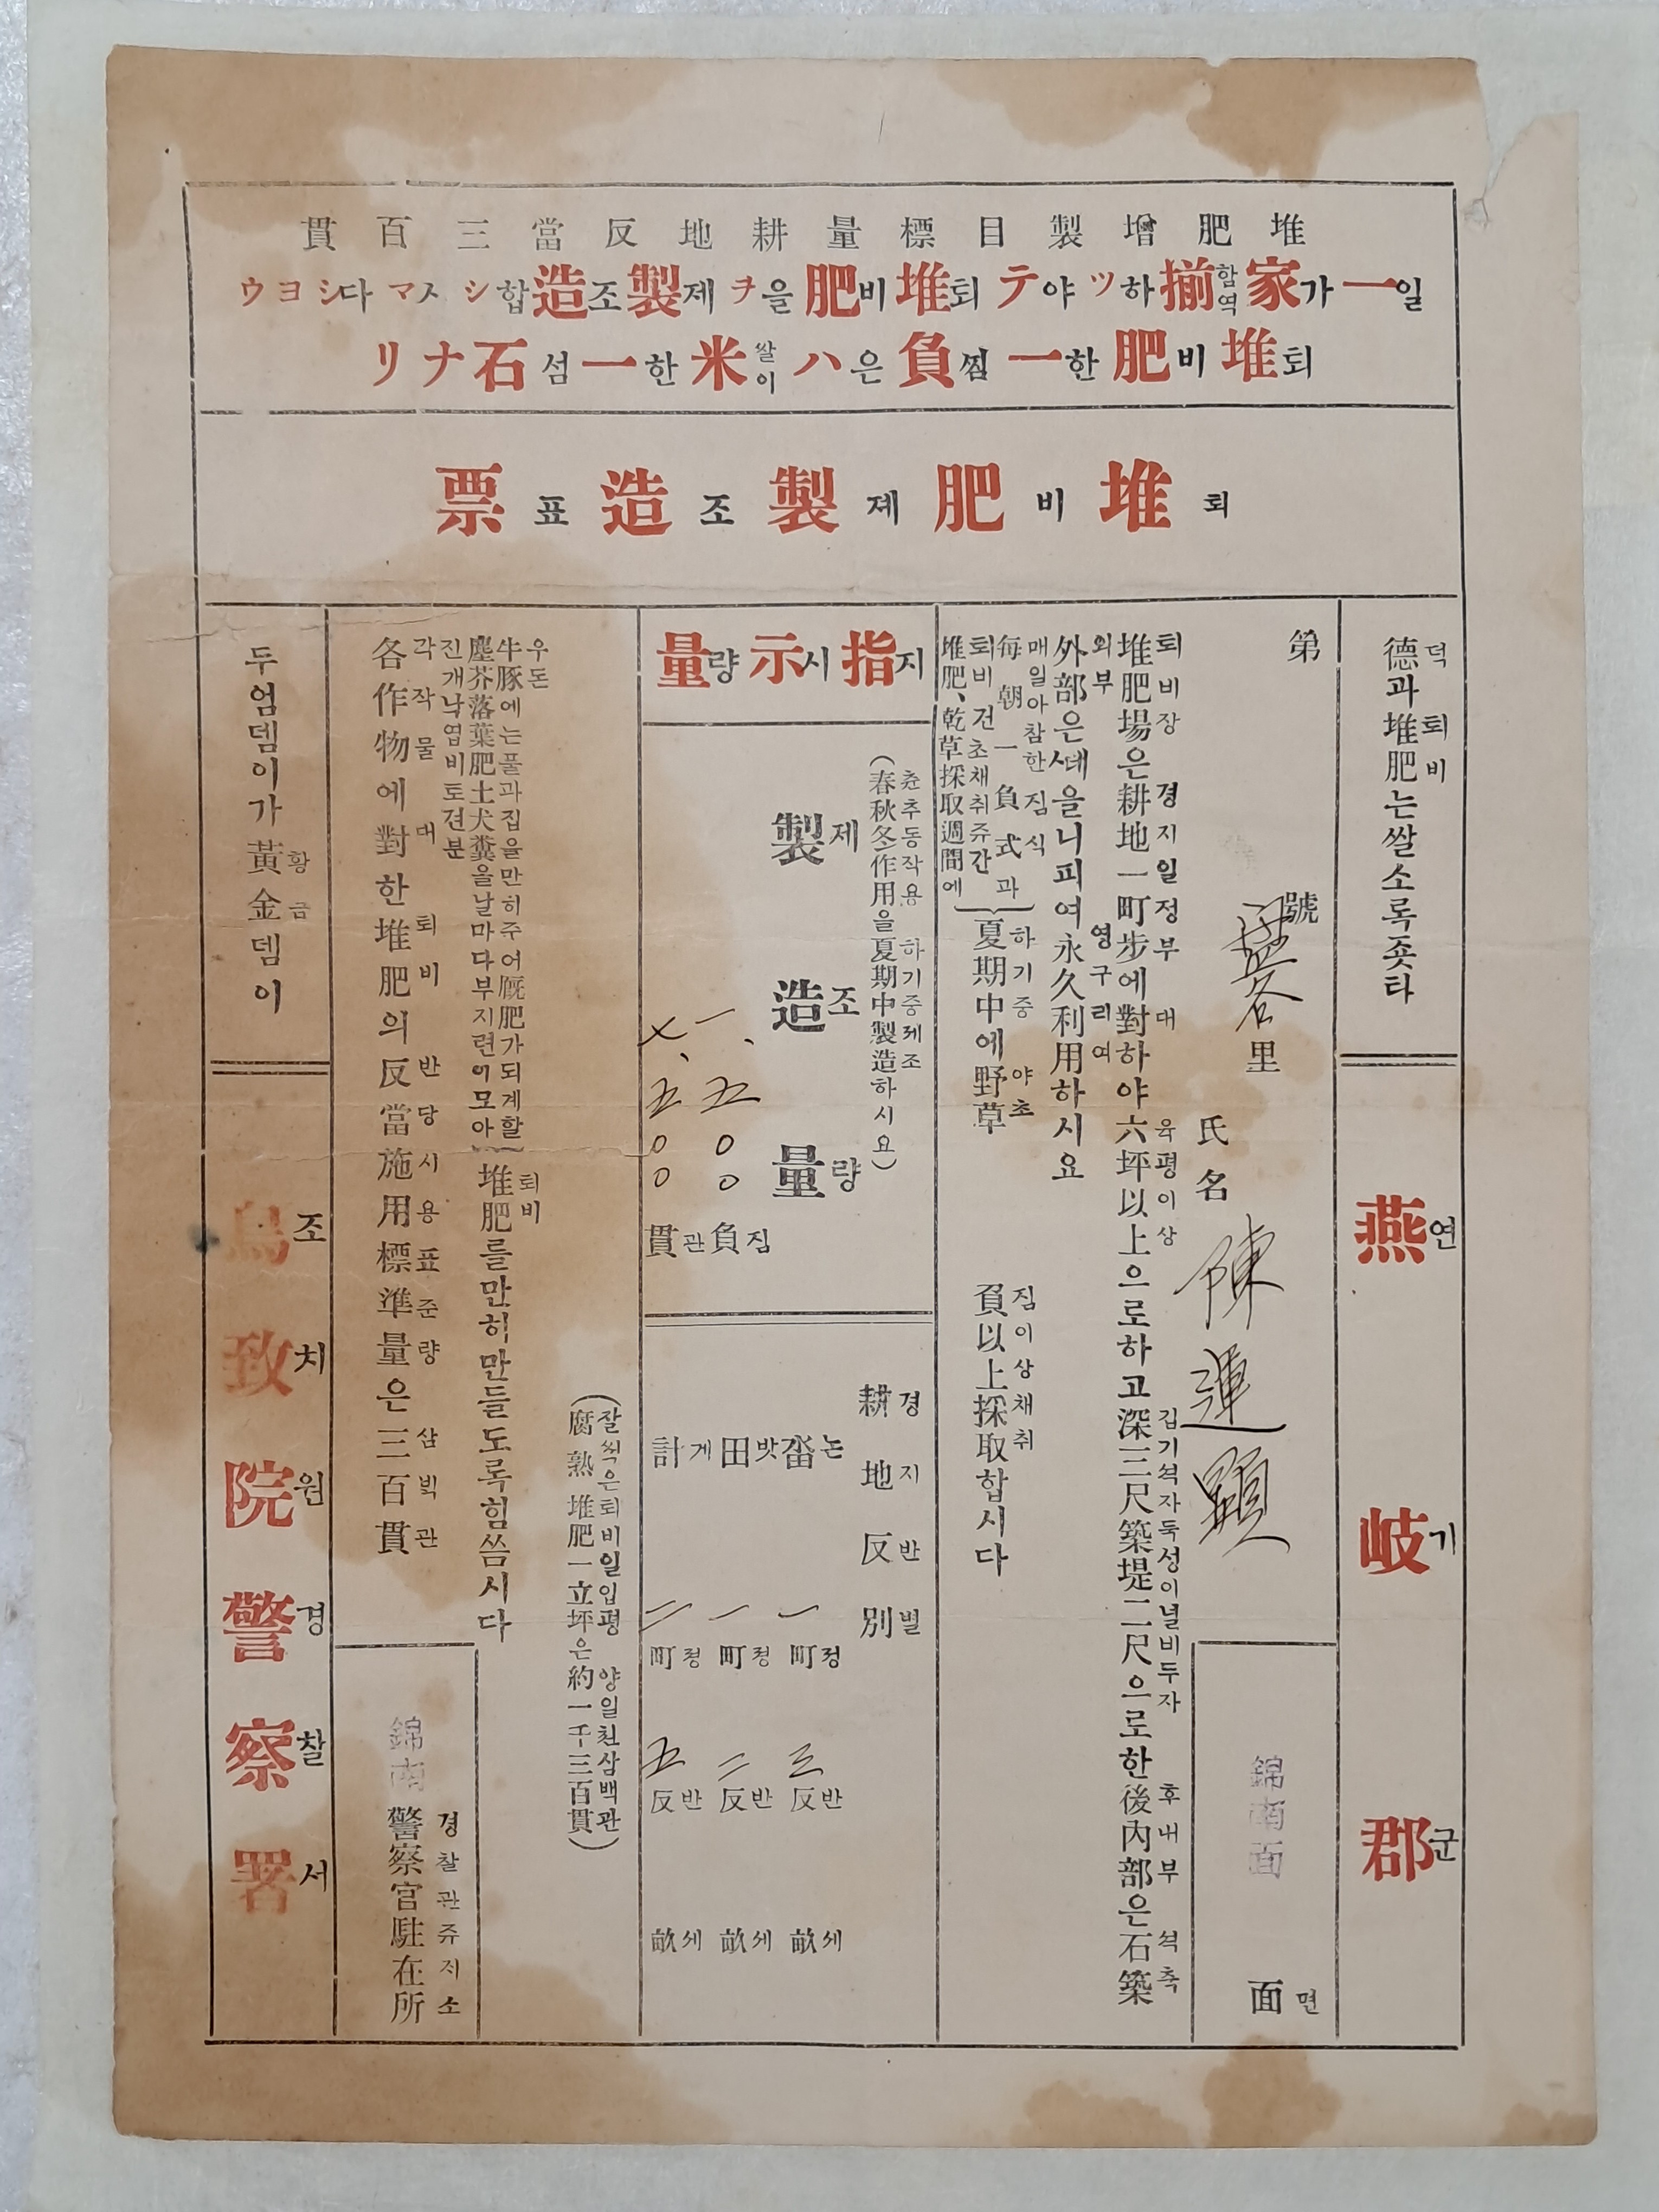 堆肥增製目標量耕地反當三百貫
일一가家함역揃하ツ야テ퇴堆비肥을ヲ제製조造합シ시マ다シヨウ
퇴堆비肥한一찜負은ハ쌀이米한一섬石ナリ
퇴堆비肥제製조造표票
덕 퇴비
德과堆肥는쌀소록좃타
연 기 군
燕岐郡
第 號
里
氏名 陳運顯
錦南面
面 면
퇴비장 경지일정부 대 육평이상 깁기셕자둑성이널비두자 후내부 셕축
堆肥場은耕地一町步에對하야六坪以上으로하고深三尺築堤二尺으로한後內部은石築
외부 영구리여
外部은ᄯᅦ을니피여永久利用하시요
매일아참한짐식
每朝一負式과
퇴비건초채취쥬간
堆肥、乾草採取週間에
하기중 야초 짐이상채취
夏期中에野草 負以上採取합시다
지指시示량量
츈추동작용 하기중제조
(春秋冬作用을夏期中製造하시요)
제 조 량
製造量
一、五〇〇 負 짐
七、五〇〇 貫 관
경지반별
耕地反別
논 畓 一 町 정 三 反 반 畝 세
밧 田 一 町 정 二 反 반 畝 세
게 計 二 町 정 五 反 반 畝 세
(잘썩은퇴비일입평 양일천삼백관
腐熟堆肥一立坪은約一千三百貫)
우돈
牛豚에는풀과집을만히주어廐肥가되게할
진개낙엽비토견분
塵芥落葉肥土犬糞을날마다부지런이모아
퇴비
堆肥를만히만들도록힘씀시다
각작물 대 퇴비 반당시용표준량 삼빅관
各作物에對한堆肥의反當施用標準量은三百貫
錦南
경찰관쥬지소
警察官駐在所
황금
두엄뎀이가黃金뎀이
조치원경찰서
鳥致院警察署